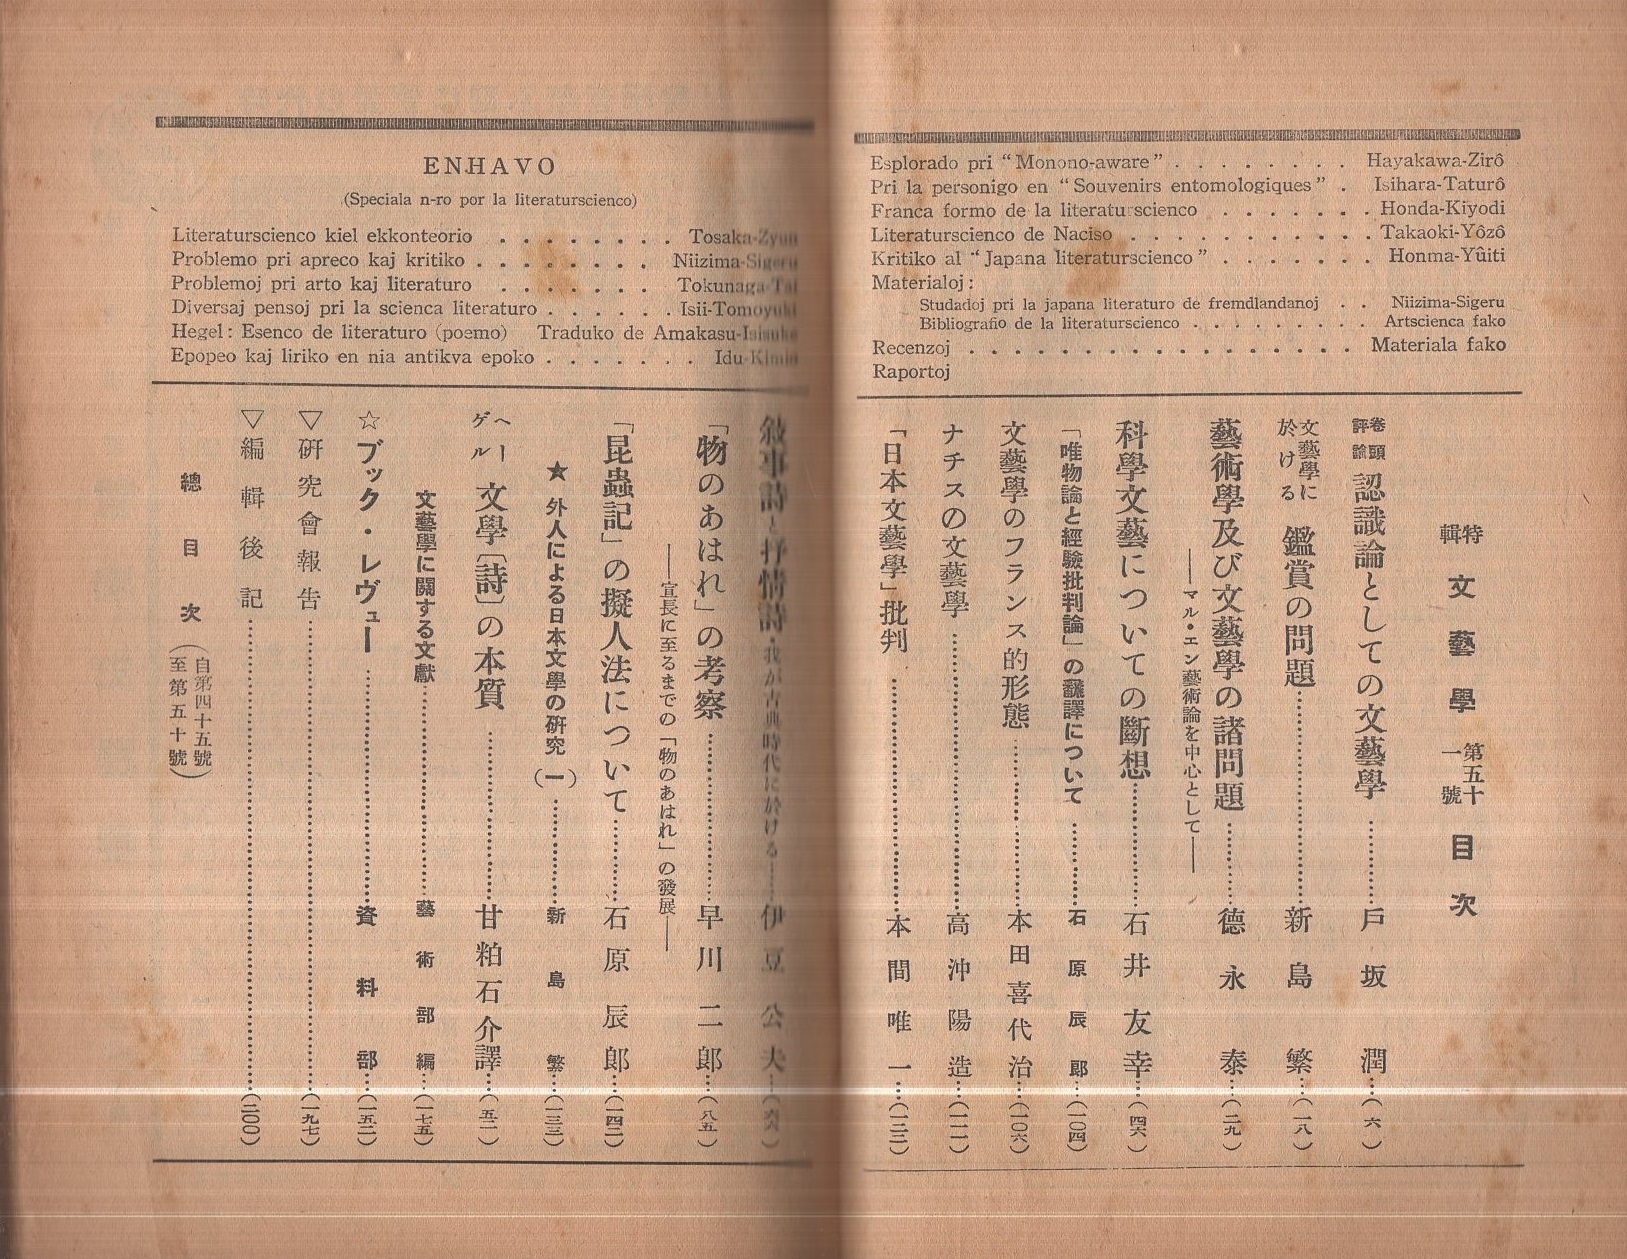 ENHAVO
(Speciala n-ro por la literaturscienco)
Literaturscienco kiel ekkonteorio . . . . . . . . Tosaka-Zyun
Problemo pri apreco kaj kritiko . . . . . . . . Niizima-Sigeru
Problemoj pri arto kaj literaturo . . . . . . . Tokunaga-Tai
Diversaj pensoj pri la scienca literaturo . . . . . . Isii-Tomoyuki
Hegel: Esenco de literaturo (poemo) Traduko de Amakasu-Isisuke
Epopeo kaj liriko en nia antikva epoko . . . . . . . Idu-Kimio
Esplorado pri “Monono-aware” . . . . . . . . Hayakawa-Zirô
Pri la personigo en “Souvenirs entomologiques” . Isihara-Taturô
Franca formo de la literaturscienco . . . . . . . Honda-Kiyodi
Literaturscienco de Naciso . . . . . . . . . . . Takaoki-Yôzô
Kritiko al “Japana literaturscienco” . . . . . . . Honma-Yûiti
Materialoj:
Studadoj pri la japana literaturo de fremdlandanoj . . Niizima-Sigeru
Bibliografio de la literaturscienco . . . . . . . . . Artscienca fako
Recenzoj . . . . . . . . . . . . . . . . . Materiala fako
Raportoj
特輯 文藝學 第五十一號 目次
卷頭評論 認識論としての文藝學……戶坂潤…(六)
文藝學に於ける 鑑賞の問題……新島繁…(一八)
藝術學及び文藝學の諸問題……德永泰…(二九)
――マル・エン藝術論を中心として――
科學文藝についての斷想……石井友幸…(四六)
「唯物論と經驗批判論」の飜譯について……石原辰郎…(一〇四)
文藝學のフランス的形態……本田喜代治…(一〇六)
ナチスの文藝學……高沖陽造…(一一一)
「日本文藝學」批判……本間唯一…(一二三)
敍事詩と抒情詩・我が古典時代に於ける……伊豆公夫…(六六)
「物のあはれ」の考察……早川二郎…(八五)
――宣長に至るまでの「物のあはれ」の發展――
「昆蟲記」の擬人法について……石原辰郎…(一四二)
★外人による日本文學の研究(一)……新島繁…(一三三)
ヘーゲル 文學〔詩〕の本質……甘粕石介譯…(五二)
文藝學に關する文獻……藝術部編…(一七五)
☆ブック・レヴュー……資料部…(一五二)
▽研究會報告……(一九七)
▽編輯後記……(二〇〇)
總目次(自第四十五號
至第五十號)